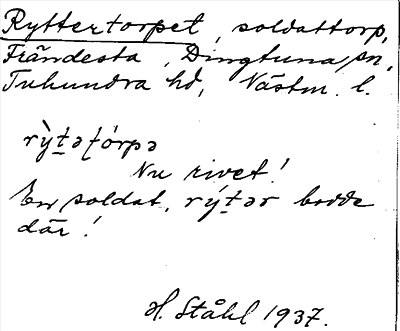 Ryttertorpet, soldattorp,
Frändesta, Dingtuna sn,
Tuhundra hd, Västm. l.
rỳt̲əţórpə
Nu rivet!
En soldat, rýt̲ər bodde
där!
H. Ståhl 1937.